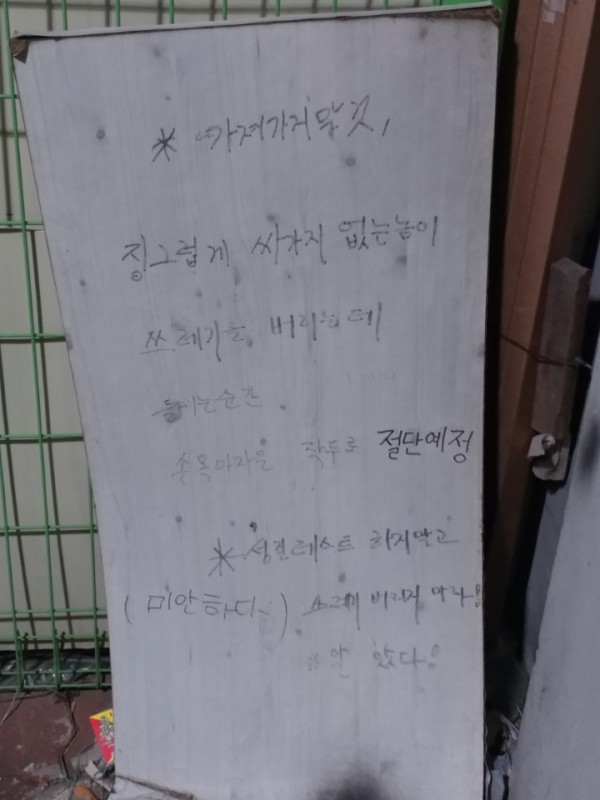 * 가져가지 말것,
징그럽게 싸가지 없는놈이
쓰레기를 버리는데
들키는순간
손목아지를 작두로 절단예정
* 성질테스트 하지말고
(미안하다) 쓰레기 버리지 마라
알았다!